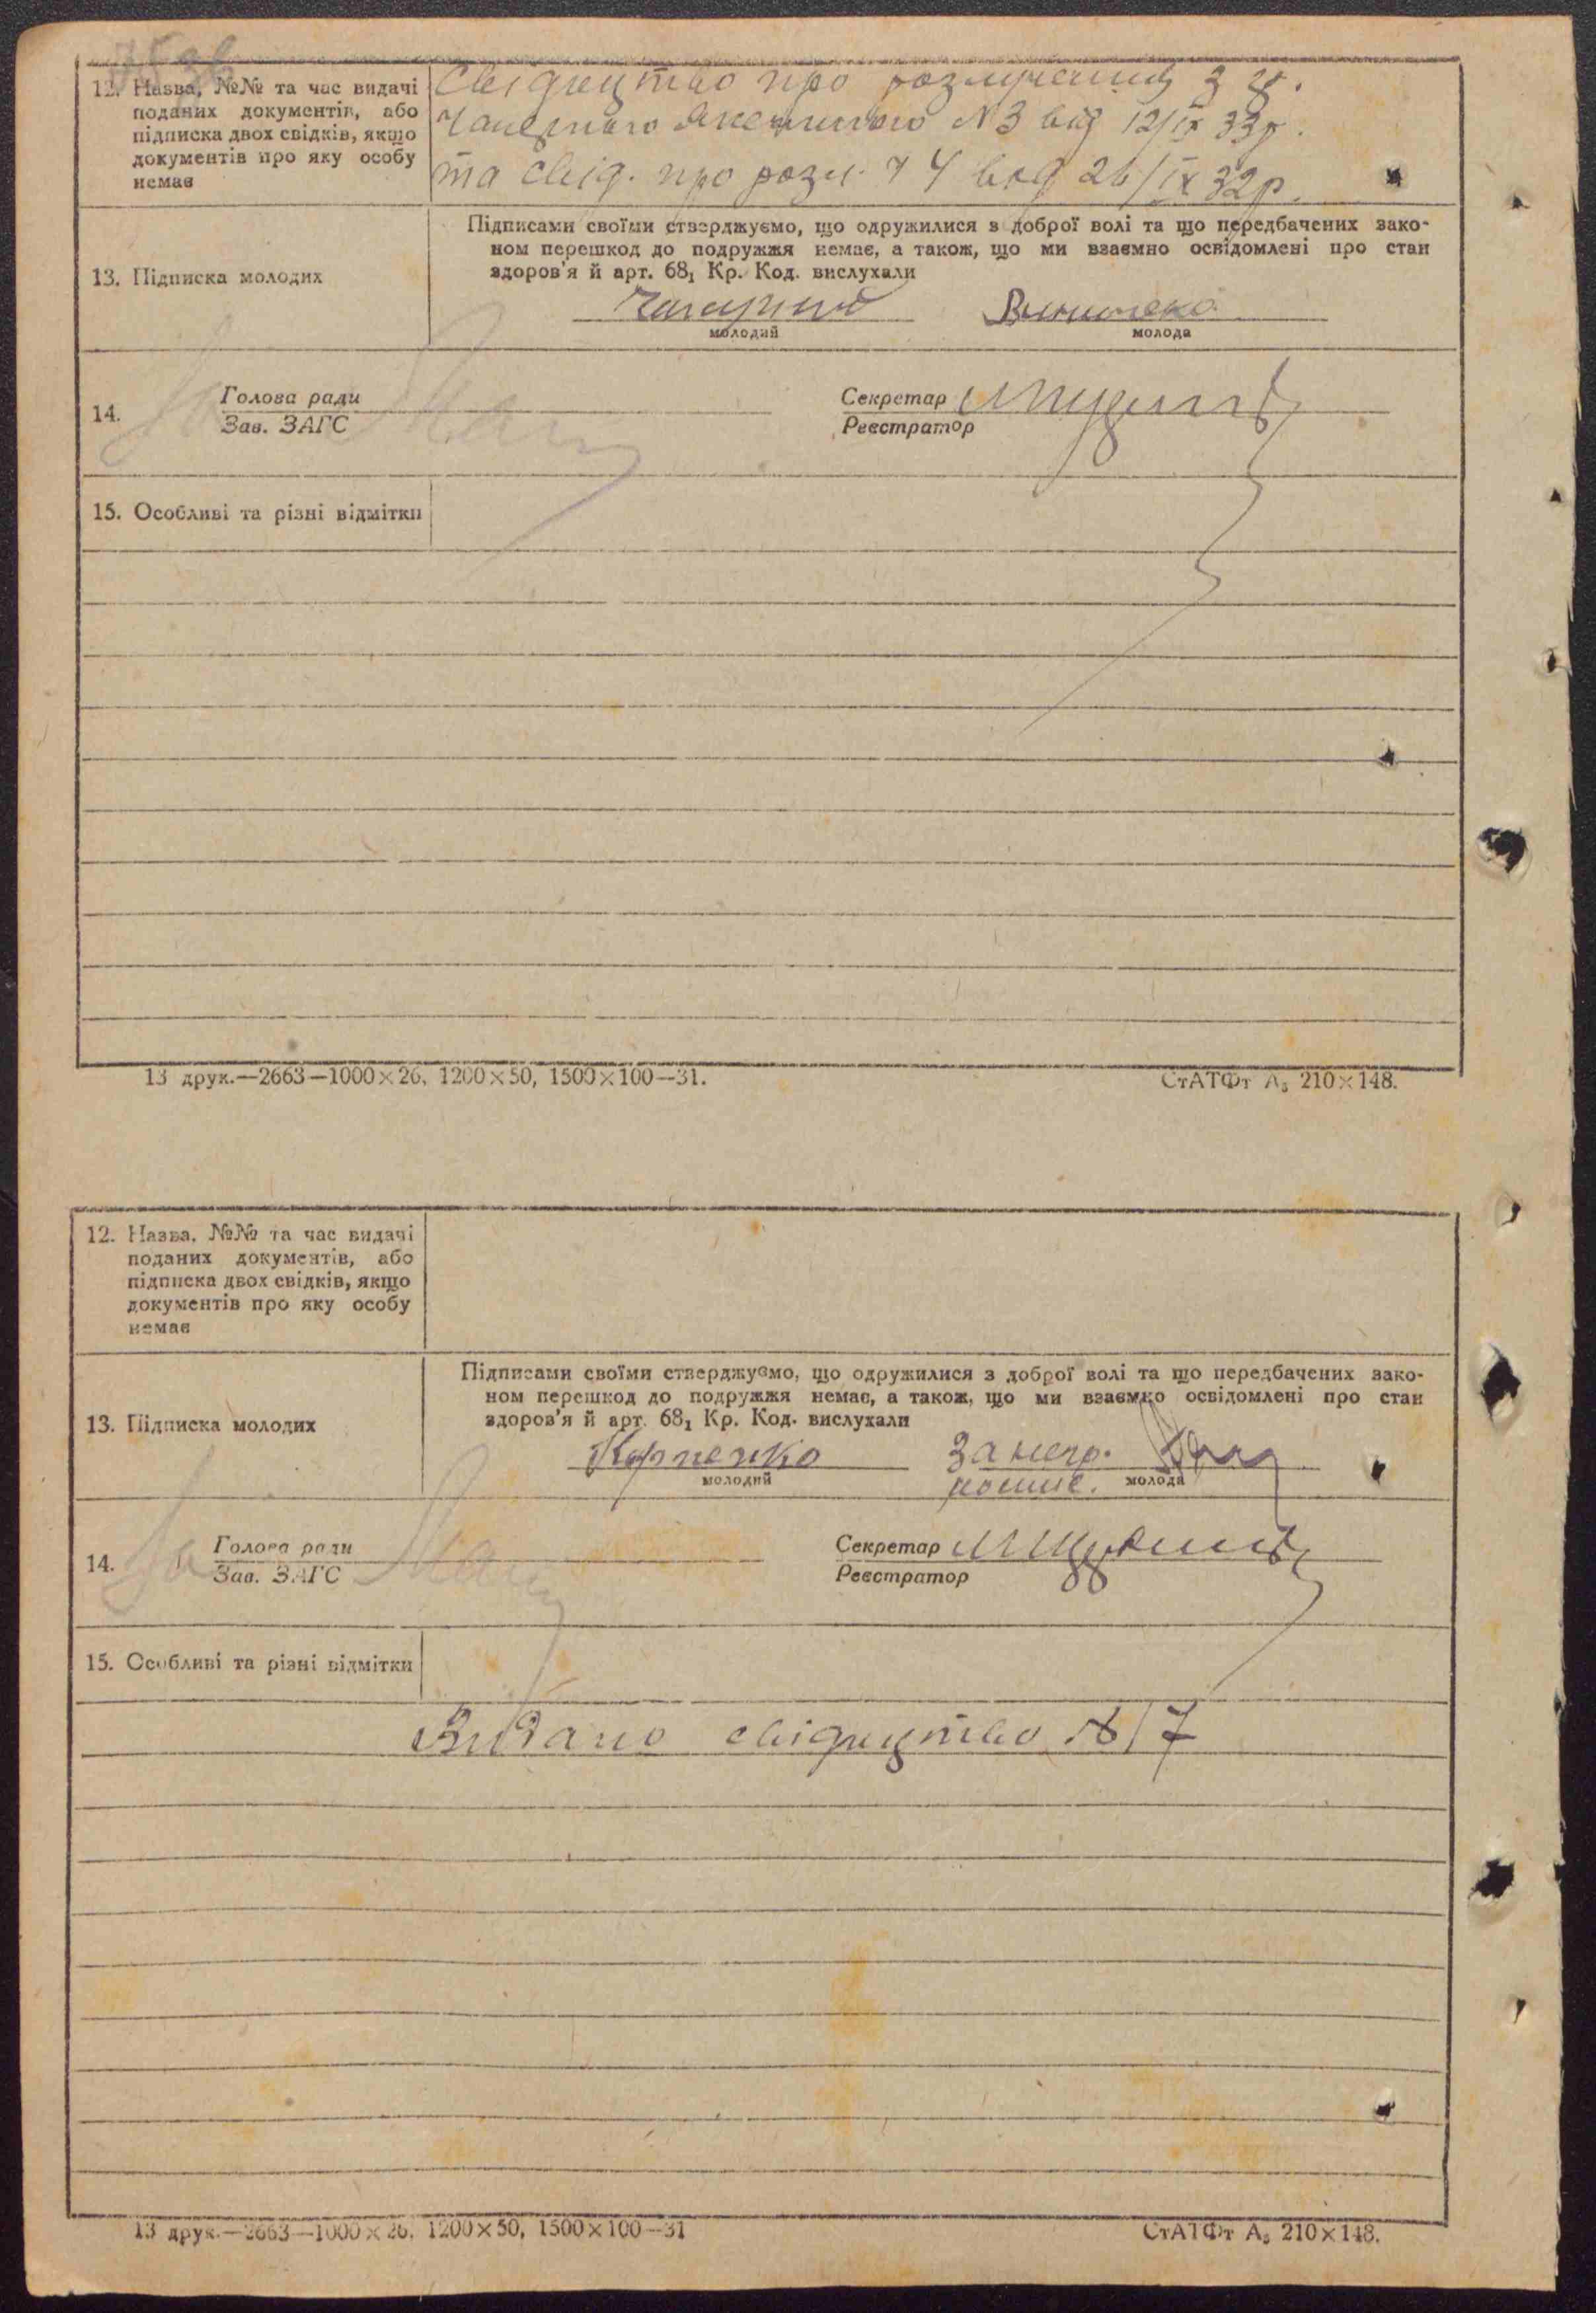 12. Назва, №№ та час видачі
поданих документів, або
підписка двох свідків, якщо
документів про яку особу
немає
Свідоцтво про розлучення з гр.
N 3 від 12/IX 33р.
та свід. про розл. 4 від 26/IX 32р.
13. Підписка молодих
Підписами своїми стверджуємо, що одружилися з доброї волі та що передбачених зако-
ном перешкод до подружжя немає, а також, що ми взаємно освідомлені про стан
здоров'я й арт. 68₁ Кр. Код. вислухали
молодий молода
14.
Голова ради
Зав. ЗАГС
Секретар
Реєстратор
15. Особливі та різні відмітки
13 друк.—2663—1000×26, 1200×50, 1500×100—31.
СтАТФт А₅ 210×148.
12. Назва, №№ та час видачі
поданих документів, або
підписка двох свідків, якщо
документів про яку особу
немає
13. Підписка молодих
Підписами своїми стверджуємо, що одружилися з доброї волі та що передбачених зако-
ном перешкод до подружжя немає, а також, що ми взаємно освідомлені про стан
здоров'я й арт. 68₁ Кр. Код. вислухали
Карпенко За негр.
молодий молода
14.
Голова ради
Зав. ЗАГС
Секретар
Реєстратор
15. Особливі та різні відмітки
Видано свідоцтво № 17
13 друк.—2663—1000×26, 1200×50, 1500×100—31
СтАТФт А₅ 210×148.